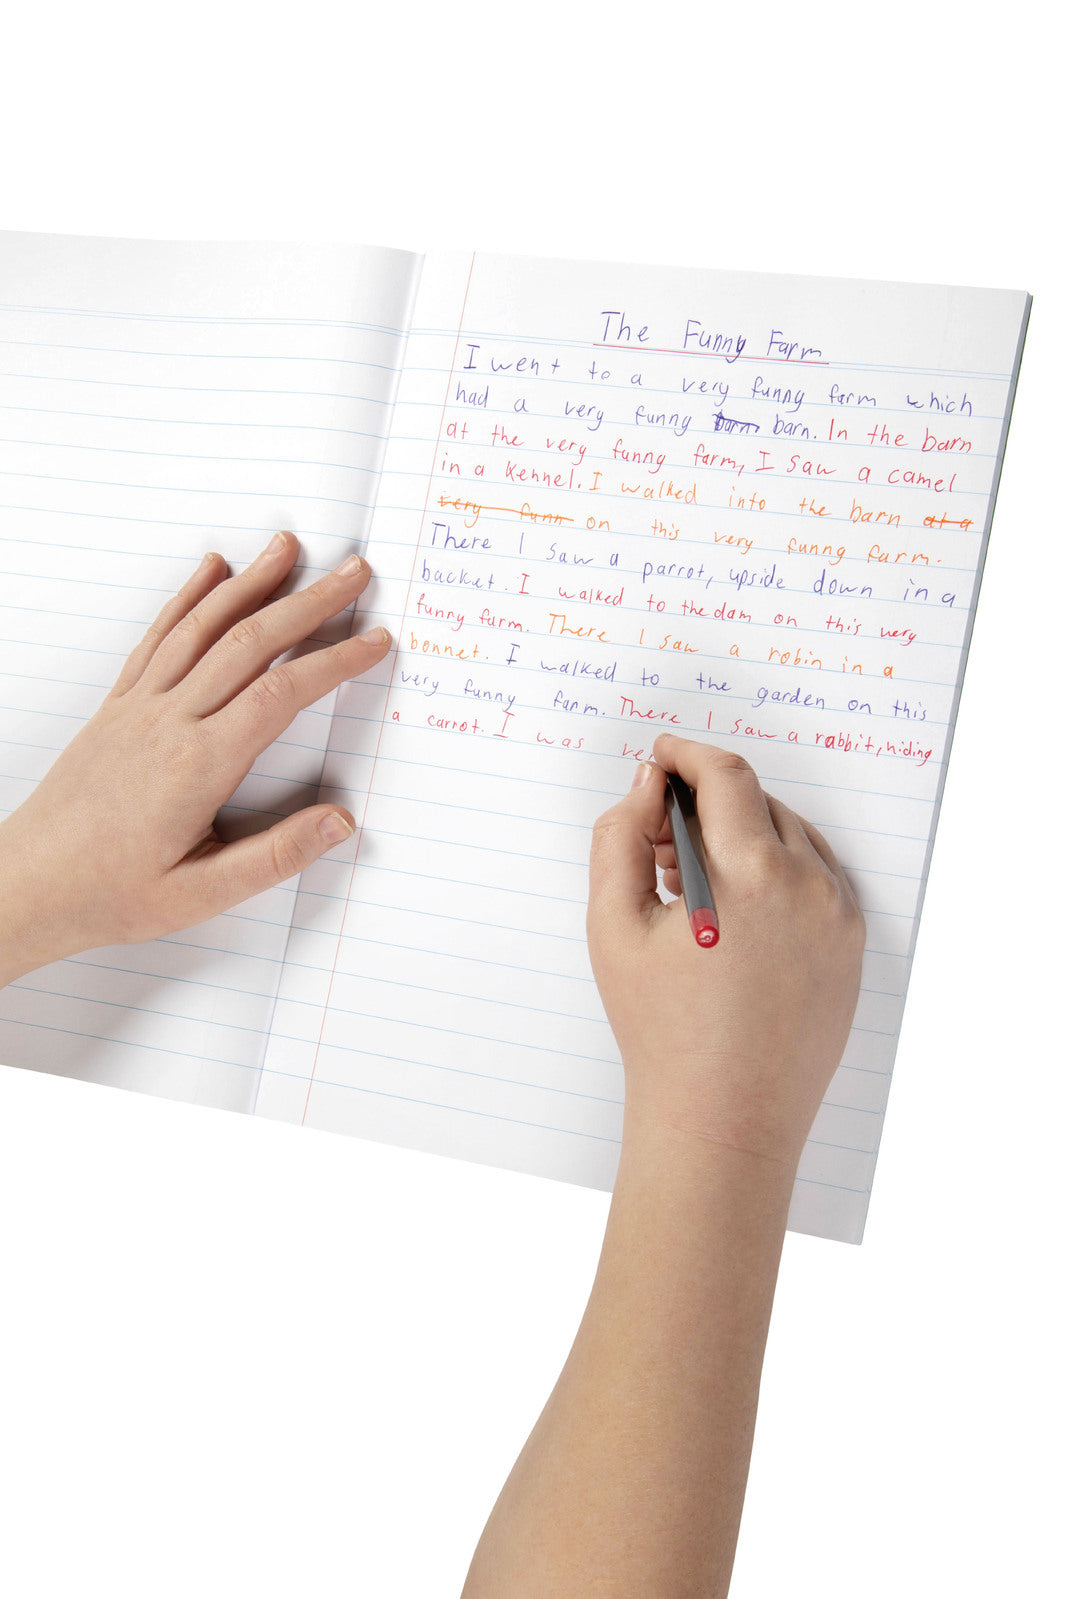 The Funny Farm
I went to a very funny farm which
had a very funny barn barn. In the barn
at the very funny farm, I saw a camel
in a kennel. I walked into the barn at a
very funn on this very funny farm.
There I saw a parrot, upside down in a
backet. I walked to the dam on this very
funny farm. There I saw a robin in a
bonnet. I walked to the garden on this
very funny farm. There I saw a rabbit, hiding
a carrot. I was